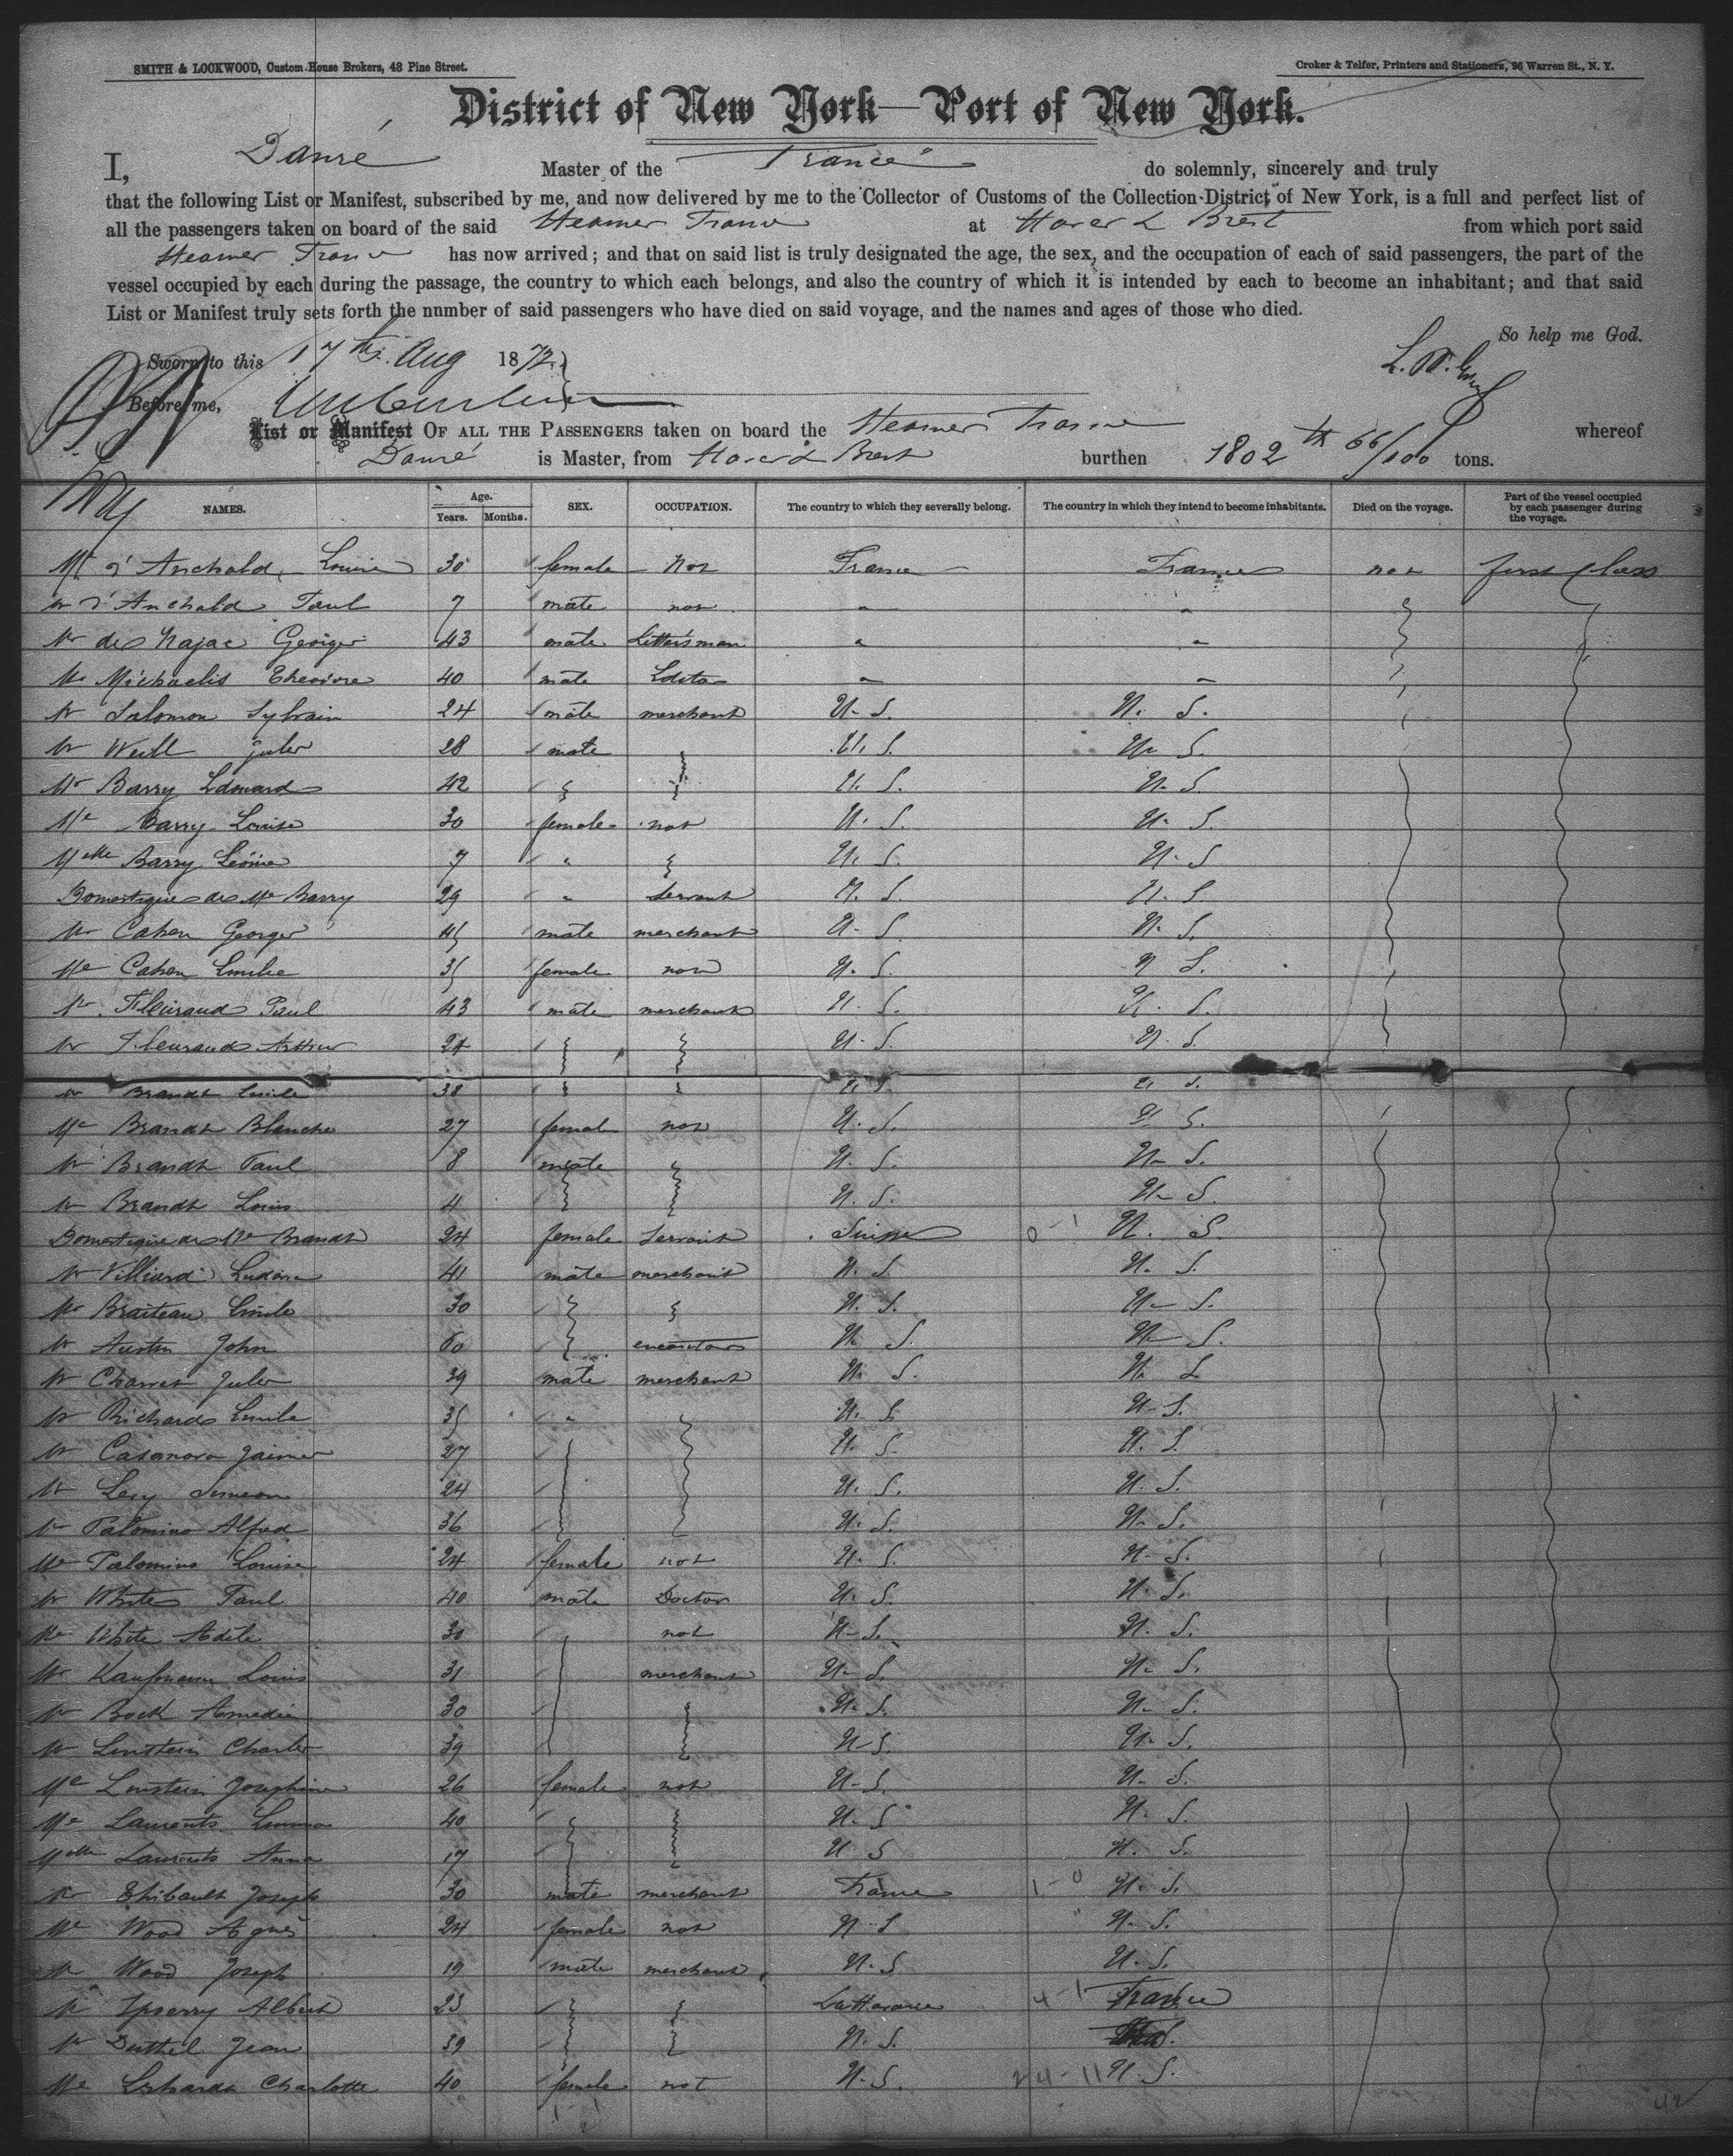 SMITH & LOCKWOOD, Custom House Brokers, 48 Pine Street.
Croker & Telfer, Printers and Stationers, 96 Warren St., N. Y.
District of New York—Port of New York.
I, Danré Master of the "France" do solemnly, sincerely and truly
that the following List or Manifest, subscribed by me, and now delivered by me to the Collector of Customs of the Collection-District of New York, is a full and perfect list of
all the passengers taken on board of the said Steamer France at Havre & Brest from which port said
Steamer France has now arrived; and that on said list is truly designated the age, the sex, and the occupation of each of said passengers, the part of the
vessel occupied by each during the passage, the country to which each belongs, and also the country of which it is intended by each to become an inhabitant; and that said
List or Manifest truly sets forth the number of said passengers who have died on said voyage, and the names and ages of those who died.
So help me God.
Sworn to this 17th Aug 1872
Before me,
List or Manifest OF ALL THE PASSENGERS taken on board the Steamer France whereof
Danré is Master, from Havre & Brest burthen 1802 66/100 tons.
NAMES. Age. Years. Months. SEX. OCCUPATION. The country to which they severally belong. The country in which they intend to become inhabitants. Died on the voyage. Part of the vessel occupied by each passenger during the voyage.
Me d'Anchald, Louise 30 female not France France not first class
Mr d'Anchald Paul 7 male not " "
Mr de Najac Georges 43 male Lettersman " "
Mr Michaelis Theodore 40 male Editor " "
Mr Salomon Sylvain 24 male merchant U. S. U. S.
Mr Weill Jules 28 male U. S. U. S.
Mr Barry Edouard 42 U. S. U. S.
Me Barry Louise 30 female not U. S. U. S.
Melle Barry Léonie 7 " U. S. U. S
Domestique de Me Barry 29 " Servant U. S. U. S.
Mr Cahen Georges 45 male merchant U. S. U. S.
Me Cahen Emilie 35 female not U. S. U S.
Mr Fleuraud Paul 43 male merchant U. S. U. S.
Mr Fleuraud Arthur 24 U. S. U. S.
Mr Brandt Emile 38 U. S. U. S.
Me Brandt Blanche 27 female not U. S. U. S.
Mr Brandt Paul 8 male U. S. U. S.
Mr Brandt Louis 4 U. S. U. S.
Domestique de Me Brandt 24 female Servant Suisse 0-1 U. S.
Mr Villiard 41 male merchant U. S. U. S.
Mr Braiteau Emile 30 U. S. U. S.
Mr Austin John 60 U. S. U. S.
Mr Charret Jules 39 male merchant U. S. U. S
Mr Richards Emile 35 " U. S. U. S.
Mr Casanova Jaime 27 U. S. U. S.
Mr Levy Simeon 24 U. S. U. S.
Mr Palomino Alfred 36 U. S. U. S.
Me Palomino Louise 24 female not U. S. U. S.
Mr White Paul 40 male Doctor U. S. U. S.
Me White Adèle 30 not U. S. U. S.
Mr Kaufmann Louis 31 merchant U. S. U. S.
Mr Bock Amedée 30 U. S. U. S.
Mr Einstein Charles 39 U. S. U. S.
Me Einstein Josephine 26 female not U. S. U. S.
Me Laurents Emma 40 U. S U. S.
Melle Laurents Anna 17 U S U. S.
Mr Thibault Joseph 30 male merchant France 1-0 U. S.
Me Wood Agnès 24 female not U. S U. S.
Mr Wood Joseph 19 male merchant U. S U. S.
Mr Albert 23 La Havane 4-1 France
Mr Duthil Jean 39 U. S.
Me Charlotte 40 female not U. S. 24-11 U. S.
42